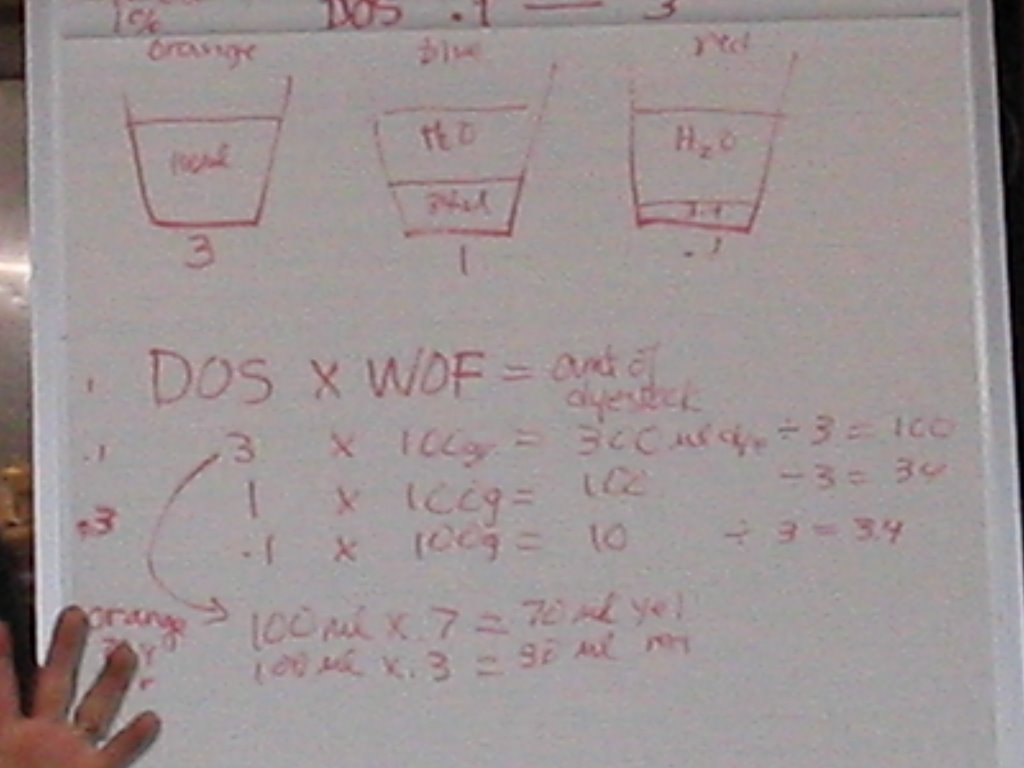 1% DOS .1 — 3
orange blue red
100ml H2O H2O
34ml 3.4
3 1 .1
DOS x WOF = amt of
dyestock
.1 3 x 100gr = 300 ml dye ÷ 3 = 100
1 x 100g = 100 ÷ 3 = 34
.3 .1 x 100g = 10 ÷ 3 = 3.4
orange 100 ml x .7 = 70 ml yel
100 ml x .3 = 30 ml